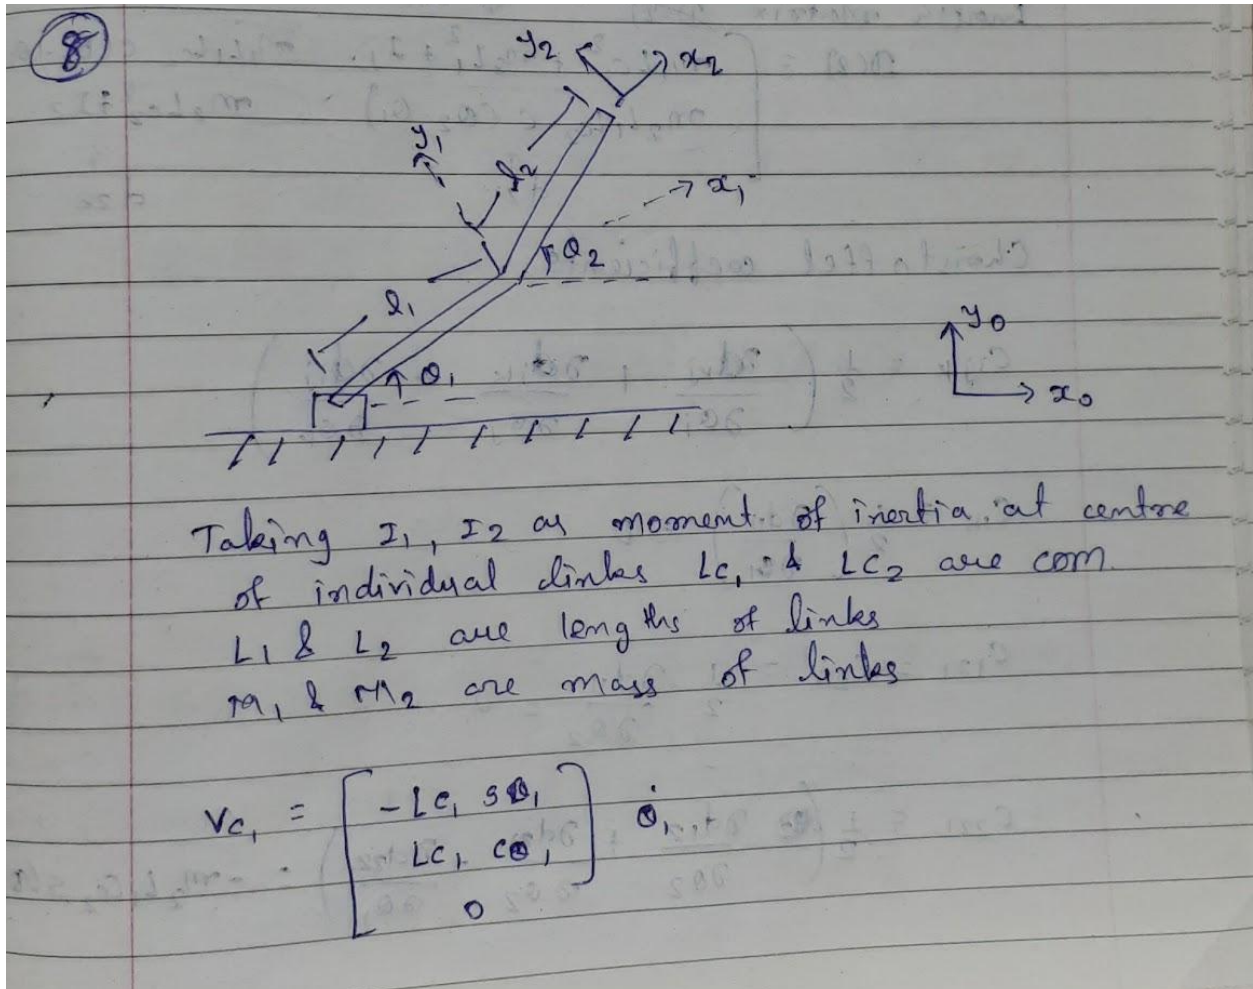 8
y₂ x₂
y₁
l₂
x₁
θ₂
l₁
θ₁
y₀
x₀
Taking I₁, I₂ as moment of inertia at centre
of individual links Lc₁ & LC₂ are com
L₁ & L₂ are lengths of links
m₁ & m₂ are mass of links
Vc₁ = [ -Lc₁ sθ₁
Lc₁ cθ₁
0 ] θ̇₁